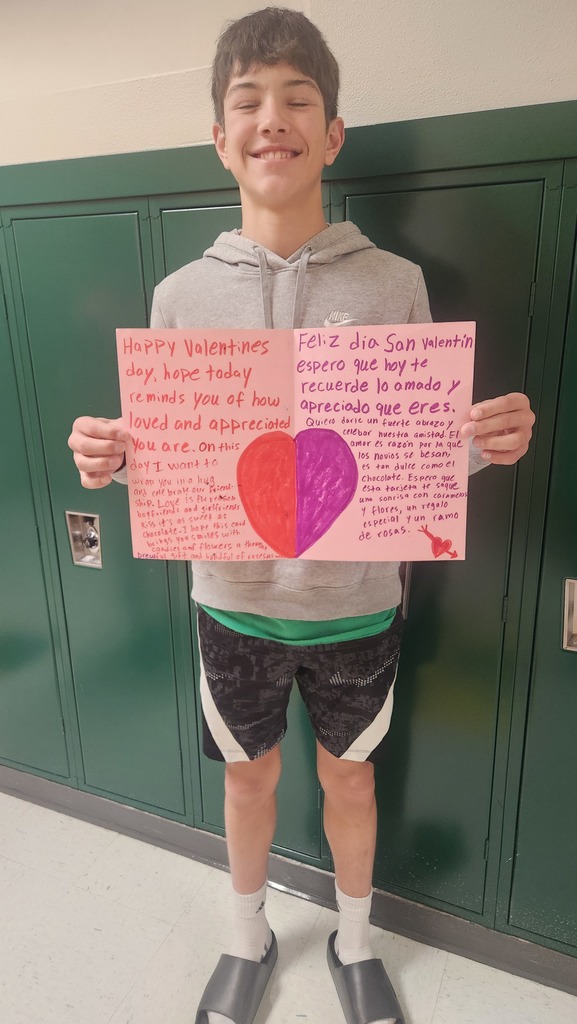 Happy Valentines
day, hope today
reminds you of how
loved and appreciated
you are. On this
day I want to
wrap you in a hug
and celebrate our friend-
ship. Love is the reason
boyfriends and girlfriends
kiss it's as sweet as
chocolate. I hope this card
brings you smiles with
candies and flowers a
gift and
Feliz dia San Valentin
espero que hoy te
recuerde lo amado y
apreciado que eres.
Quiero darte un fuerte abrazo y
celebrar nuestra amistad. El
amor es razón por la que
los novios se besan,
es tan dulce como el
chocolate. Espero que
esta tarjeta te saque
una sonrisa con caramelos
y flores, un regalo
especial y un ramo
de rosas.
NIKE